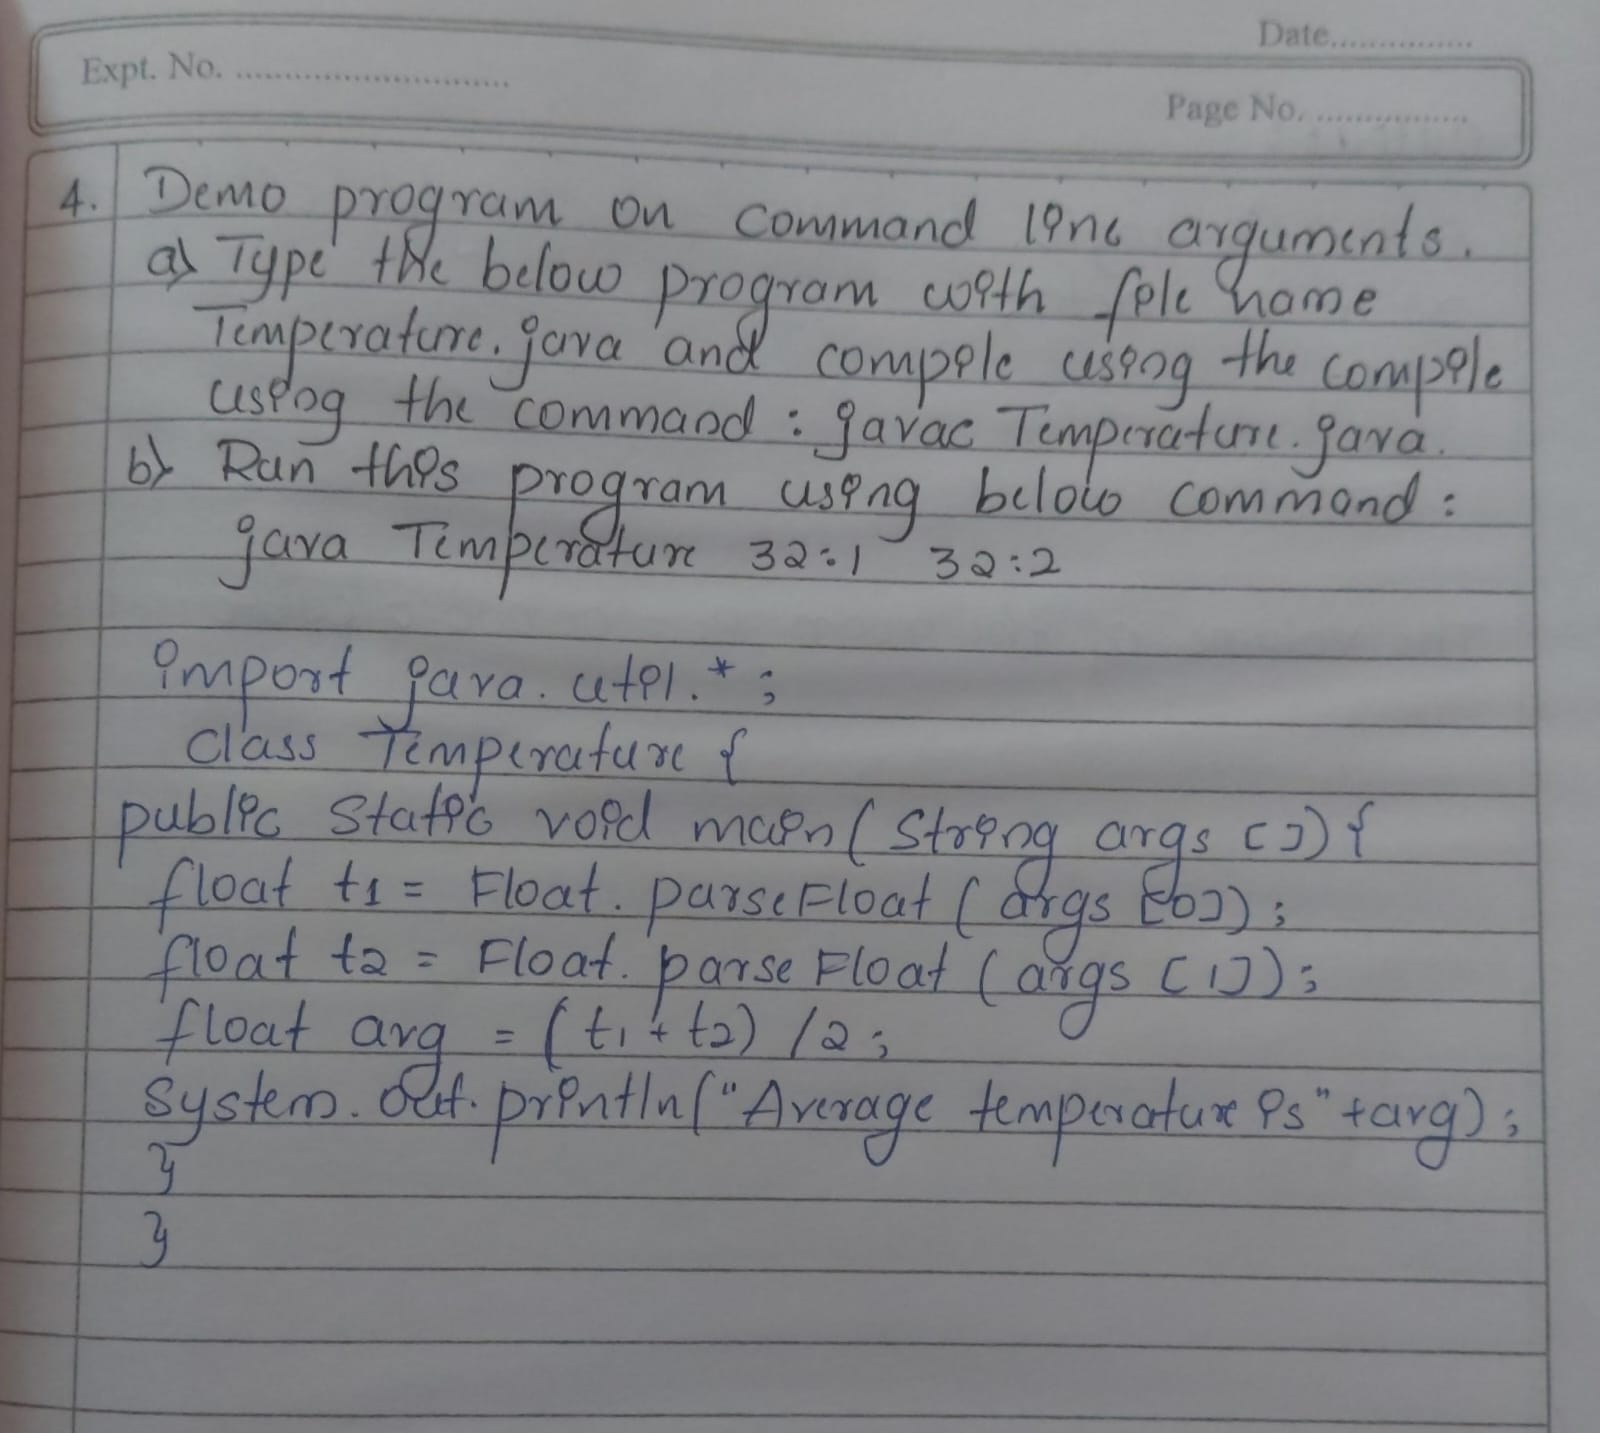 Date...............
Expt. No. ..............................
Page No. .................
4. Demo program on command line arguments.
a) Type the below program with file name
Temperature.java and compile using the compile
using the command : javac Temperature.java.
b) Run this program using below command :
java Temperature 32:1 32:2
import java.util.*;
class Temperature {
public static void main(String args []) {
float t1 = Float.parseFloat(args[0]);
float t2 = Float.parseFloat(args[1]);
float avg = (t1+t2)/2;
System.out.println("Average temperature is"+avg);
}
}